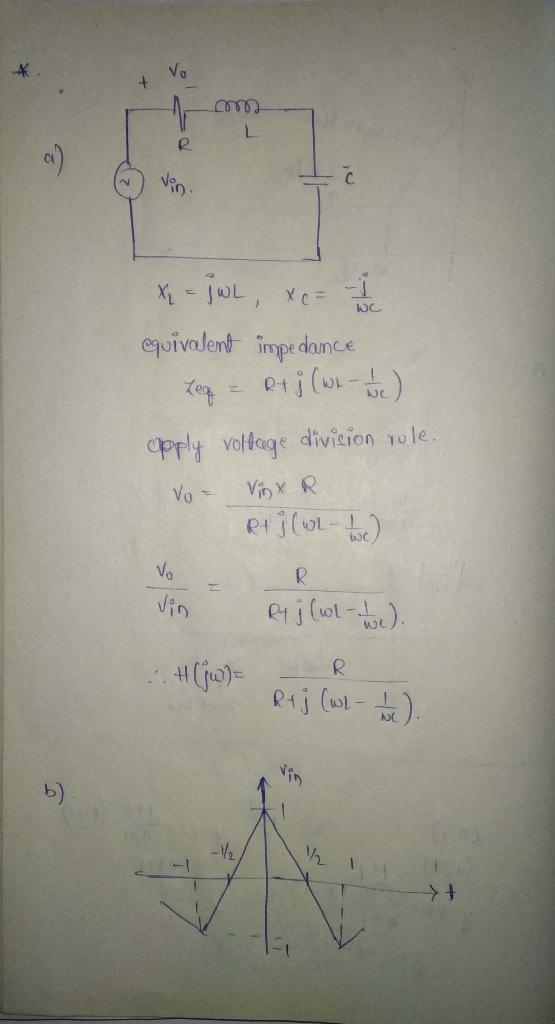 *.
+ Vo -
R L
a) Vin. C
X_L = jωL, X_C = -j/ωC
equivalent impedance
Zeq = R+j(ωL-1/ωC)
apply voltage division rule.
Vo = Vin x R / R+j(ωL-1/ωC)
Vo/Vin = R / R+j(ωL-1/ωC).
∴ H(jω) = R / R+j(ωL-1/ωC).
b) Vin
1
-1 -1/2 1/2 1
t
-1